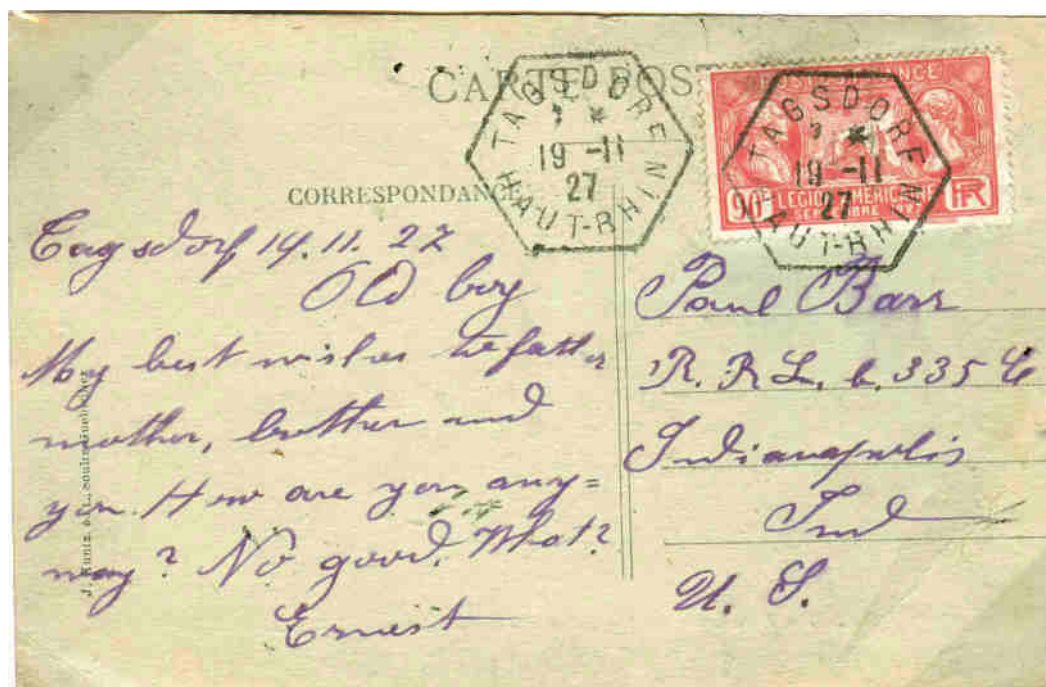 CARTE POS
TAGSDORF
19 -11
27
HAUT-RHIN
POSTES FRANCE
TAGSDORF
19 -11
27
HAUT-RHIN
90c LEGION AMERICAINE RF
SEPTEMBRE 1927
CORRESPONDANCE
Tagsdorf 19.11.27
Old boy
My best wishes to father
mother, brother und
you. How are you any=
way? No good. What?
Ernest
Paul Barr
R. R L. b. 335 C
Indianapolis
Ind
U. S.